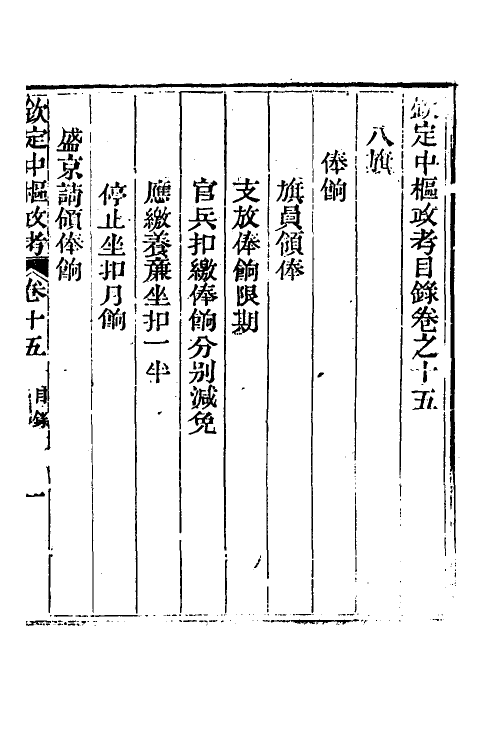 欽定中樞政考目錄卷之十五
八旗
俸餉
旗員領俸
支放俸餉限期
官兵扣繳俸餉分别減免
應繳養廉坐扣一半
停止坐扣月餉
盛京請領俸餉
欽定中樞政考 卷十五 目錄 一